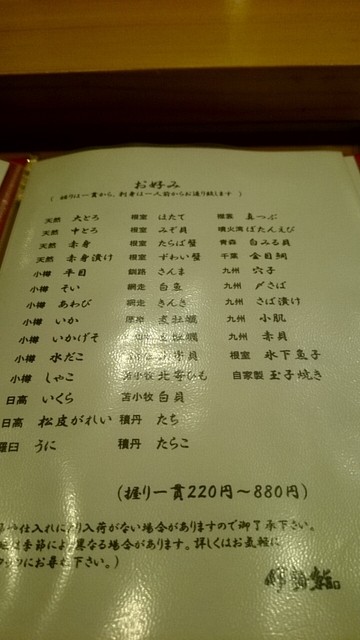 お好み
(握りは一貫から、刺身は一人前からお造り致します)
天然 大とろ
天然 中とろ
天然 赤身
天然 赤身漬け
小樽 平目
小樽 そい
小樽 あわび
小樽 いか
小樽 いかげそ
小樽 水だこ
小樽 しゃこ
日高 いくら
日高 松皮がれい
羅臼 うに
根室 ほたて
根室 みぞ貝
根室 たらば蟹
根室 ずわい蟹
釧路 さんま
網走 白魚
網走 きんき
煮牡蠣
牡蠣
貝
苫小牧 北寄ひも
苫小牧 白貝
積丹 たち
積丹 たらこ
根室 真つぶ
噴火湾 ぼたんえび
青森 白みる貝
千葉 金目鯛
九州 穴子
九州 〆さば
九州 さば漬け
九州 小肌
九州 赤貝
根室 氷下魚子
自家製 玉子焼き
(握り一貫220円〜880円)
仕入れにより入荷がない場合がありますので御了承下さい。
は季節により異なる場合があります。詳しくはお気軽に
にお尋ね下さい。)